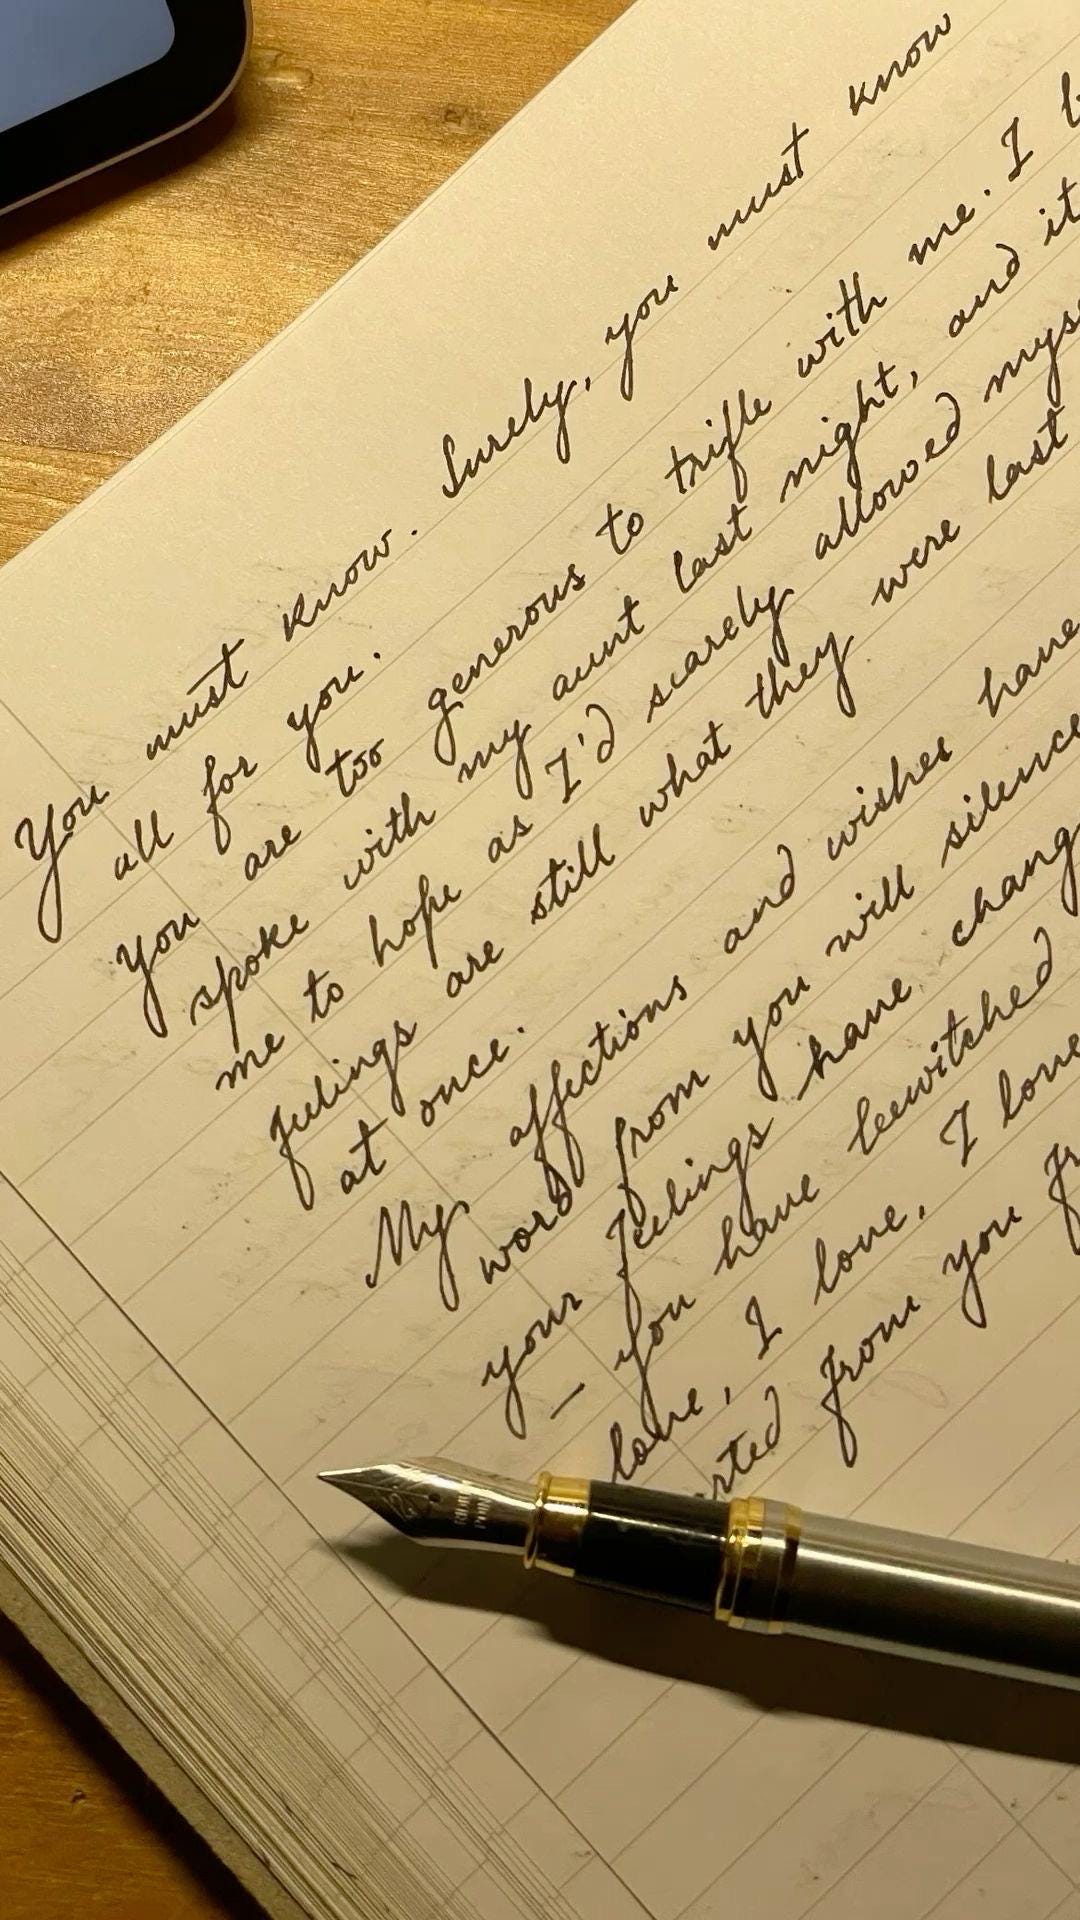 You must know. Surely, you must know
all for you.
you are too generous to trifle with me. I
spoke with my aunt last night, and it
me to hope as I'd scarely allowed mys
feelings are still what they were last
at once.
My affections and wishes have
word from you will silence
your feelings have chang
— you have bewitched
love, I love, I love
rted from you